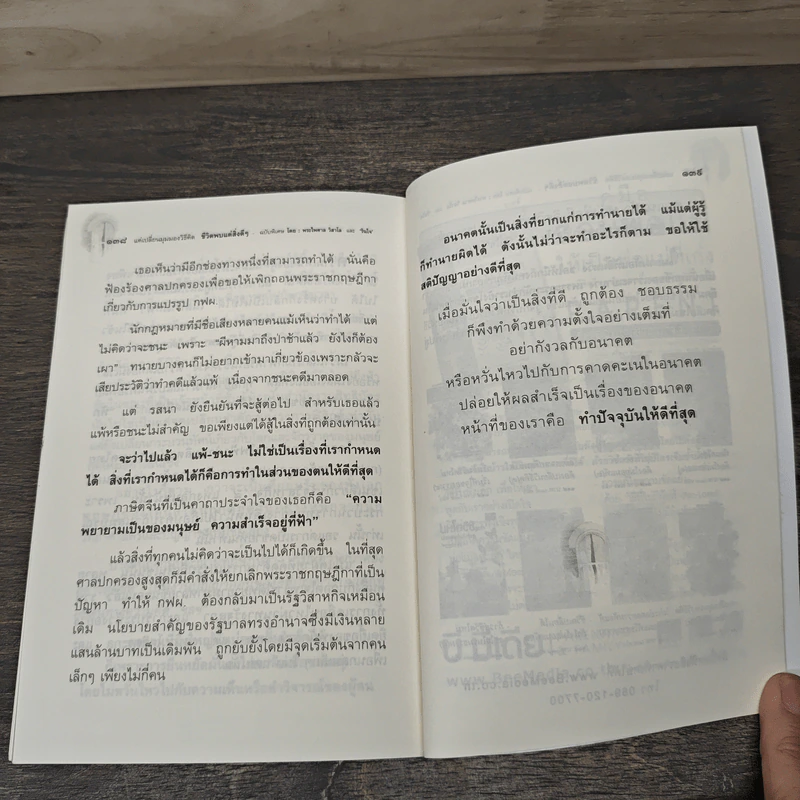 ๑๓๘ แค่เปลี่ยนมุมมองวิธีคิด ชีวิตพบแต่สิ่งดีๆ ฉบับพิเศษ โดย : พระไพศาล วิสาโล และ
เธอเห็นว่ามีอีกช่องทางหนึ่งที่สามารถทำได้ นั่นคือ
ฟ้องร้องศาลปกครองเพื่อขอให้เพิกถอนพระราชกฤษฎีกา
เกี่ยวกับการแปรรูป กฟผ.
นักกฎหมายที่มีชื่อเสียงหลายคนแม้เห็นว่าทำได้ แต่
ไม่คิดว่าจะชนะ เพราะ “ผีหามมาถึงป่าช้าแล้ว ยังไงก็ต้อง
เผา” ทนายบางคนก็ไม่อยากเข้ามาเกี่ยวข้องเพราะกลัวจะ
เสียประวัติว่าทำคดีแล้วแพ้ เนื่องจากชนะคดีมาตลอด
แต่ รสนา ยังยืนยันที่จะสู้ต่อไป สำหรับเธอแล้ว
แพ้หรือชนะไม่สำคัญ ขอเพียงแต่ได้สู้ในสิ่งที่ถูกต้องเท่านั้น
จะว่าไปแล้ว แพ้-ชนะ ไม่ใช่เป็นเรื่องที่เรากำหนด
ได้ สิ่งที่เรากำหนดได้ก็คือการทำในส่วนของตนให้ดีที่สุด
ภาษิตจีนที่เป็นคาถาประจำใจของเธอก็คือ “ความ
พยายามเป็นของมนุษย์ ความสำเร็จอยู่ที่ฟ้า”
แล้วสิ่งที่ทุกคนไม่คิดว่าจะเป็นไปได้ก็เกิดขึ้น ในที่สุด
ศาลปกครองสูงสุดก็มีคำสั่งให้ยกเลิกพระราชกฤษฎีกาที่เป็น
ปัญหา ทำให้ กฟผ. ต้องกลับมาเป็นรัฐวิสาหกิจเหมือน
เดิม นโยบายสำคัญของรัฐบาลทรงอำนาจซึ่งมีเงินหลาย
แสนล้านบาทเป็นเดิมพัน ถูกยับยั้งโดยมีจุดเริ่มต้นจากคน
เล็กๆ เพียงไม่กี่คน
๑๓๙
อนาคตนั้นเป็นสิ่งที่ยากแก่การทำนายได้ แม้แต่ผู้รู้
ก็ทำนายผิดได้ ดังนั้นไม่ว่าจะทำอะไรก็ตาม ขอให้ใช้
สติปัญญาอย่างดีที่สุด
เมื่อมั่นใจว่าเป็นสิ่งที่ดี ถูกต้อง ชอบธรรม
ก็พึงทำด้วยความตั้งใจอย่างเต็มที่
อย่ากังวลกับอนาคต
หรือหวั่นไหวไปกับการคาดคะเนในอนาคต
ปล่อยให้ผลสำเร็จเป็นเรื่องของอนาคต
หน้าที่ของเราคือ ทำปัจจุบันให้ดีที่สุด